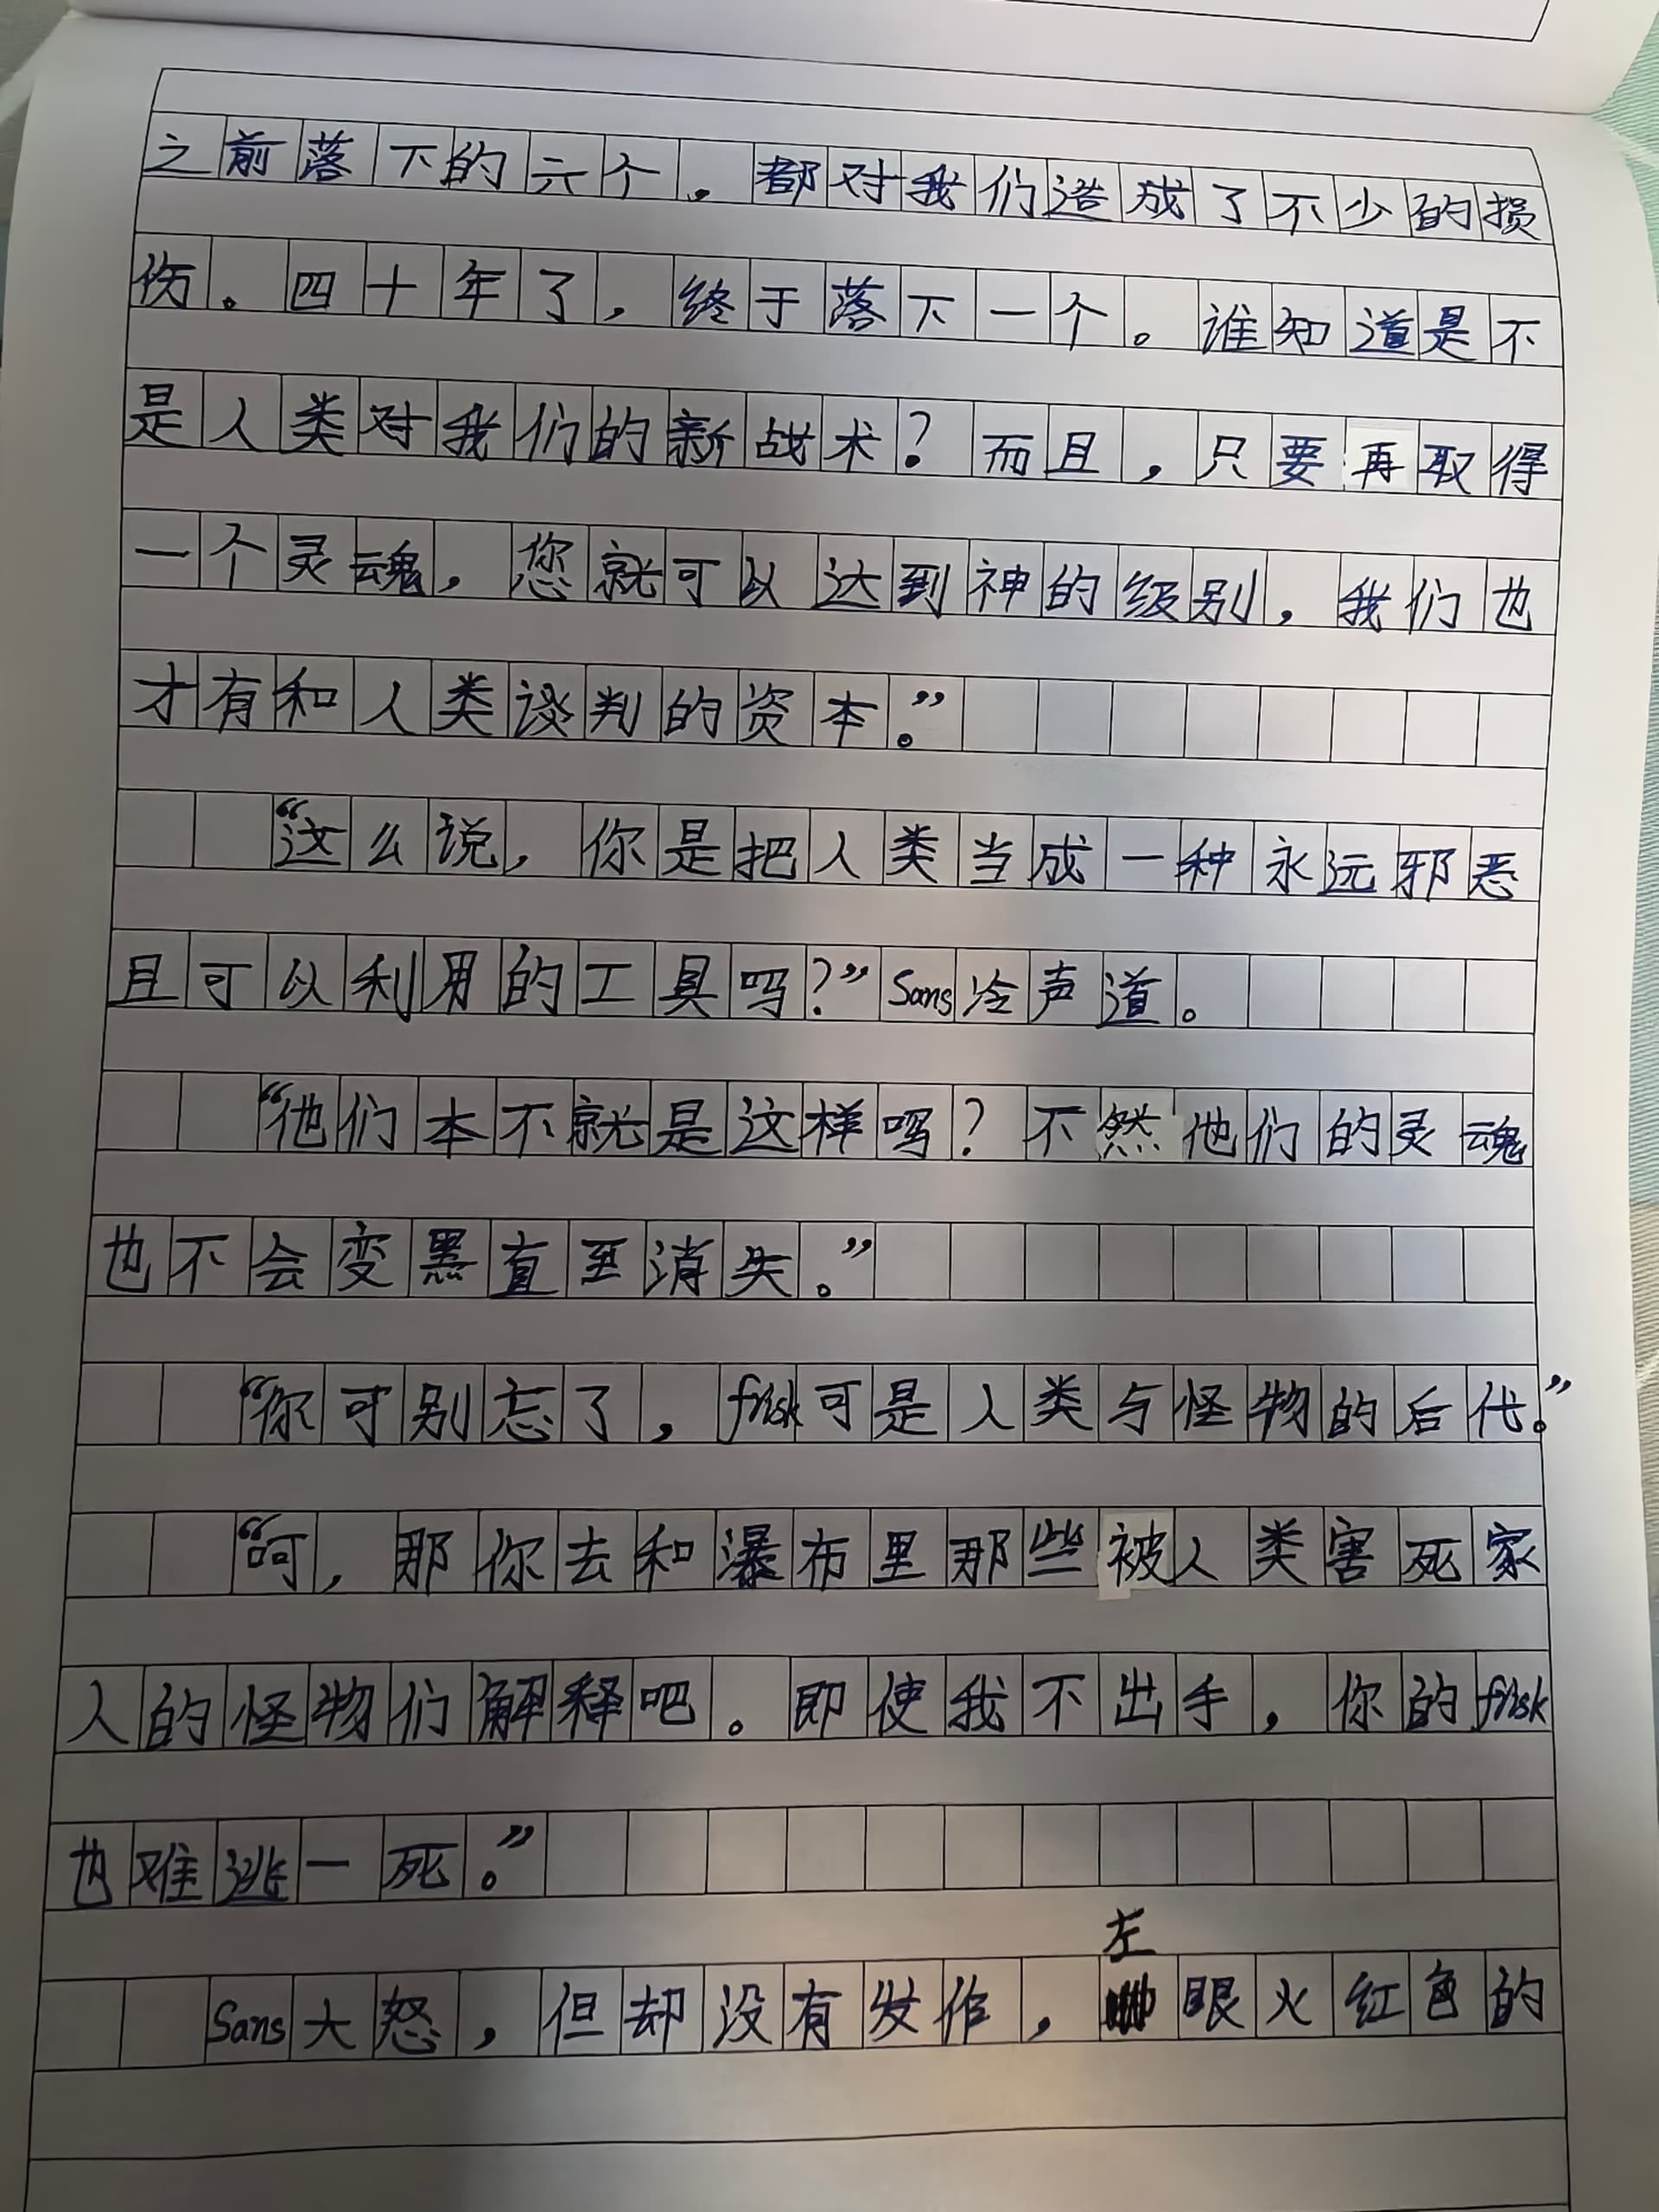 之前落下的六个，都对我们造成了不少的损
伤。四十年了，终于落下一个。谁知道是不
是人类对我们的新战术？而且，只要再取得
一个灵魂，您就可以达到神的级别，我们也
才有和人类谈判的资本。”
“这么说，你是把人类当成一种永远邪恶
且可以利用的工具吗？”Sans冷声道。
“他们本不就是这样吗？不然他们的灵魂
也不会变黑直至消失。”
“你可别忘了，frisk可是人类与怪物的后代。”
“呵，那你去和瀑布里那些被人类害死家
人的怪物们解释吧。即使我不出手，你的frisk
也难逃一死。”
Sans大怒，但却没有发作，左眼火红色的